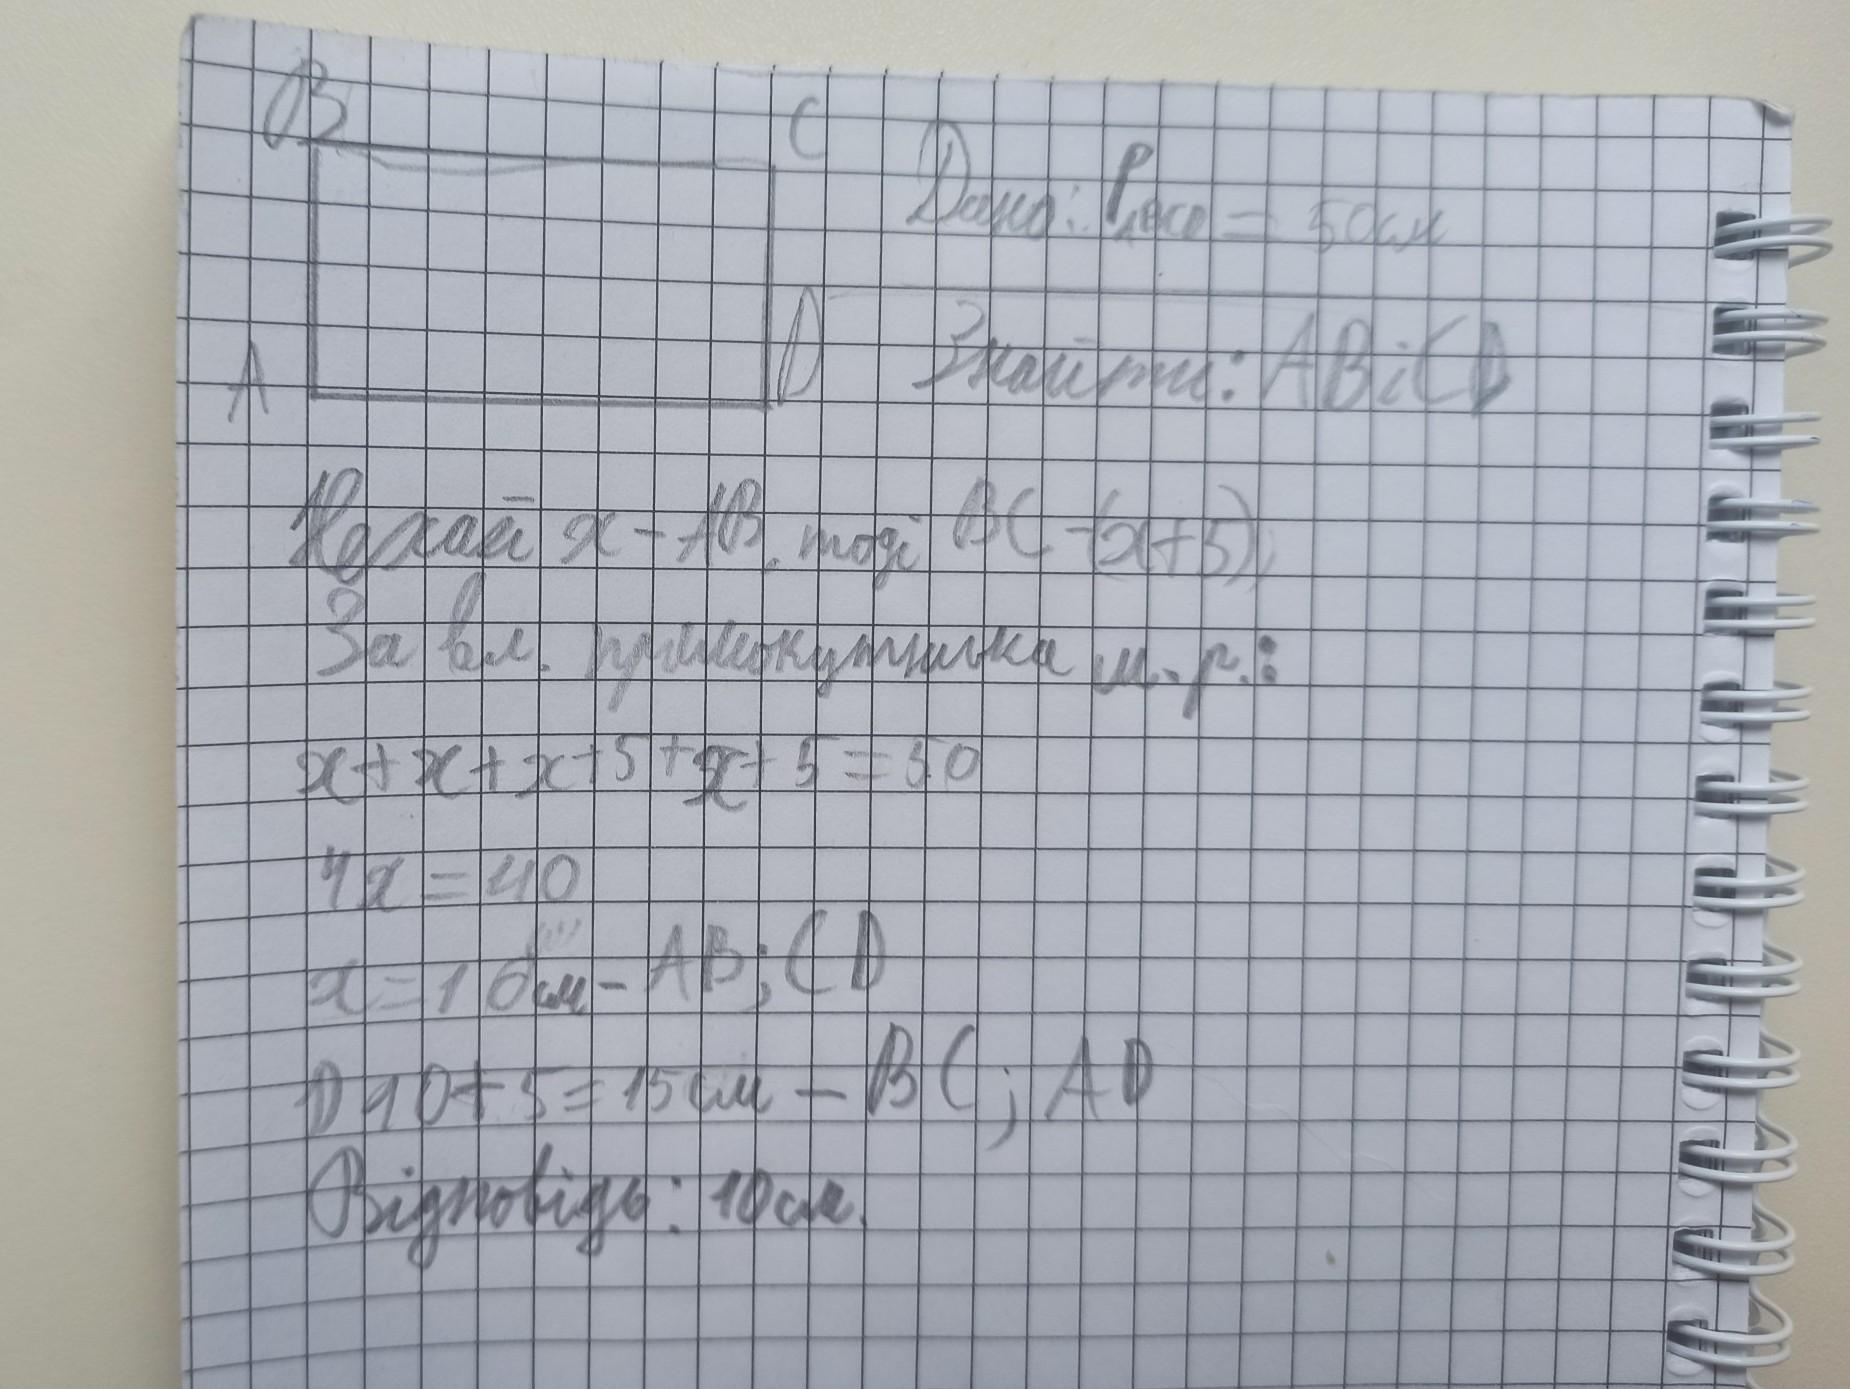 B
C
Дано: P ABCD = 50см
A
D
Знайти: AB i CD
Нехай x - AB, тоді BC - (x+5),
За вл. прямокутника м.р.:
x+x+x+5+x+5=50
4x=40
x=10см - AB; CD
1) 10+5=15см - BC; AD
Відповідь: 10см.